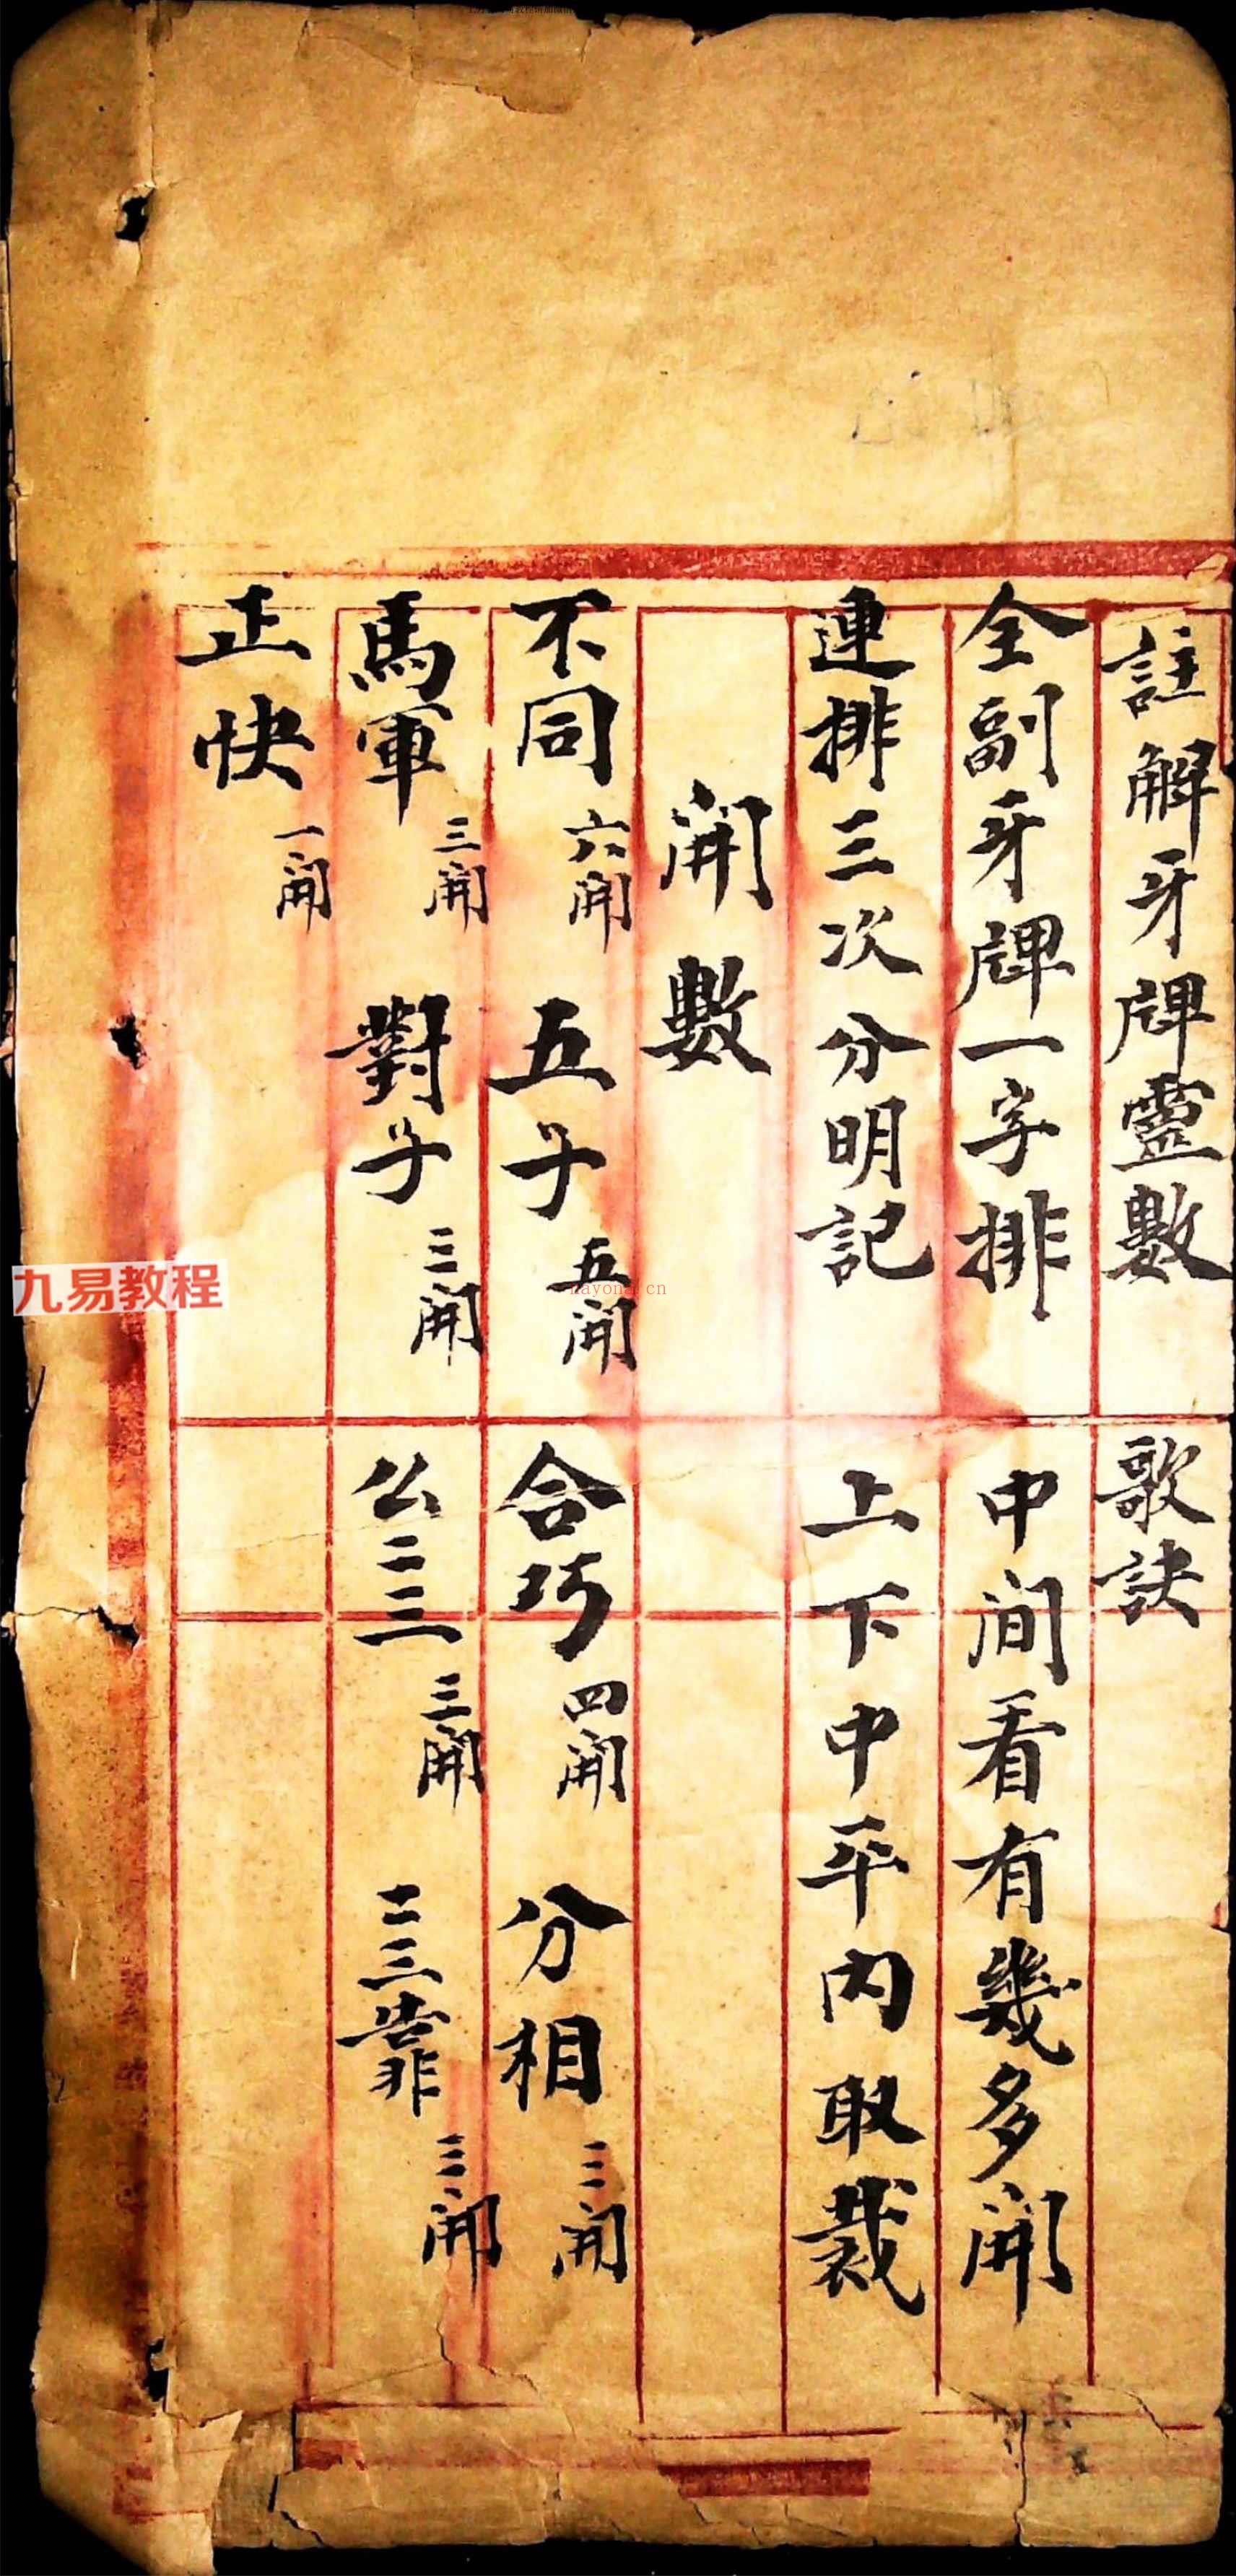 註解牙牌靈數 歌訣
全副牙牌一字排 中间看有幾多開
連排三次分明記 上下中平內取裁
開數
不同 六開 五子 五開 合巧 四開 分相 三開
馬軍 三開 對子 三開 公二三 三開 二三靠 三開
正快 一開
九易教程
nayona.cn